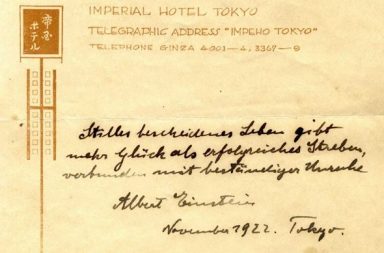 帝国
ホテル
IMPERIAL HOTEL TOKYO
TELEGRAPHIC ADDRESS "IMPEHO TOKYO"
TELEPHONE GINZA 4001—4, 3367—8
Stilles bescheidenes Leben gibt
mehr Glück als erfolgreiches Streben,
verbunden mit beständiger Unruhe
Albert Einstein
November 1922. Tokyo.